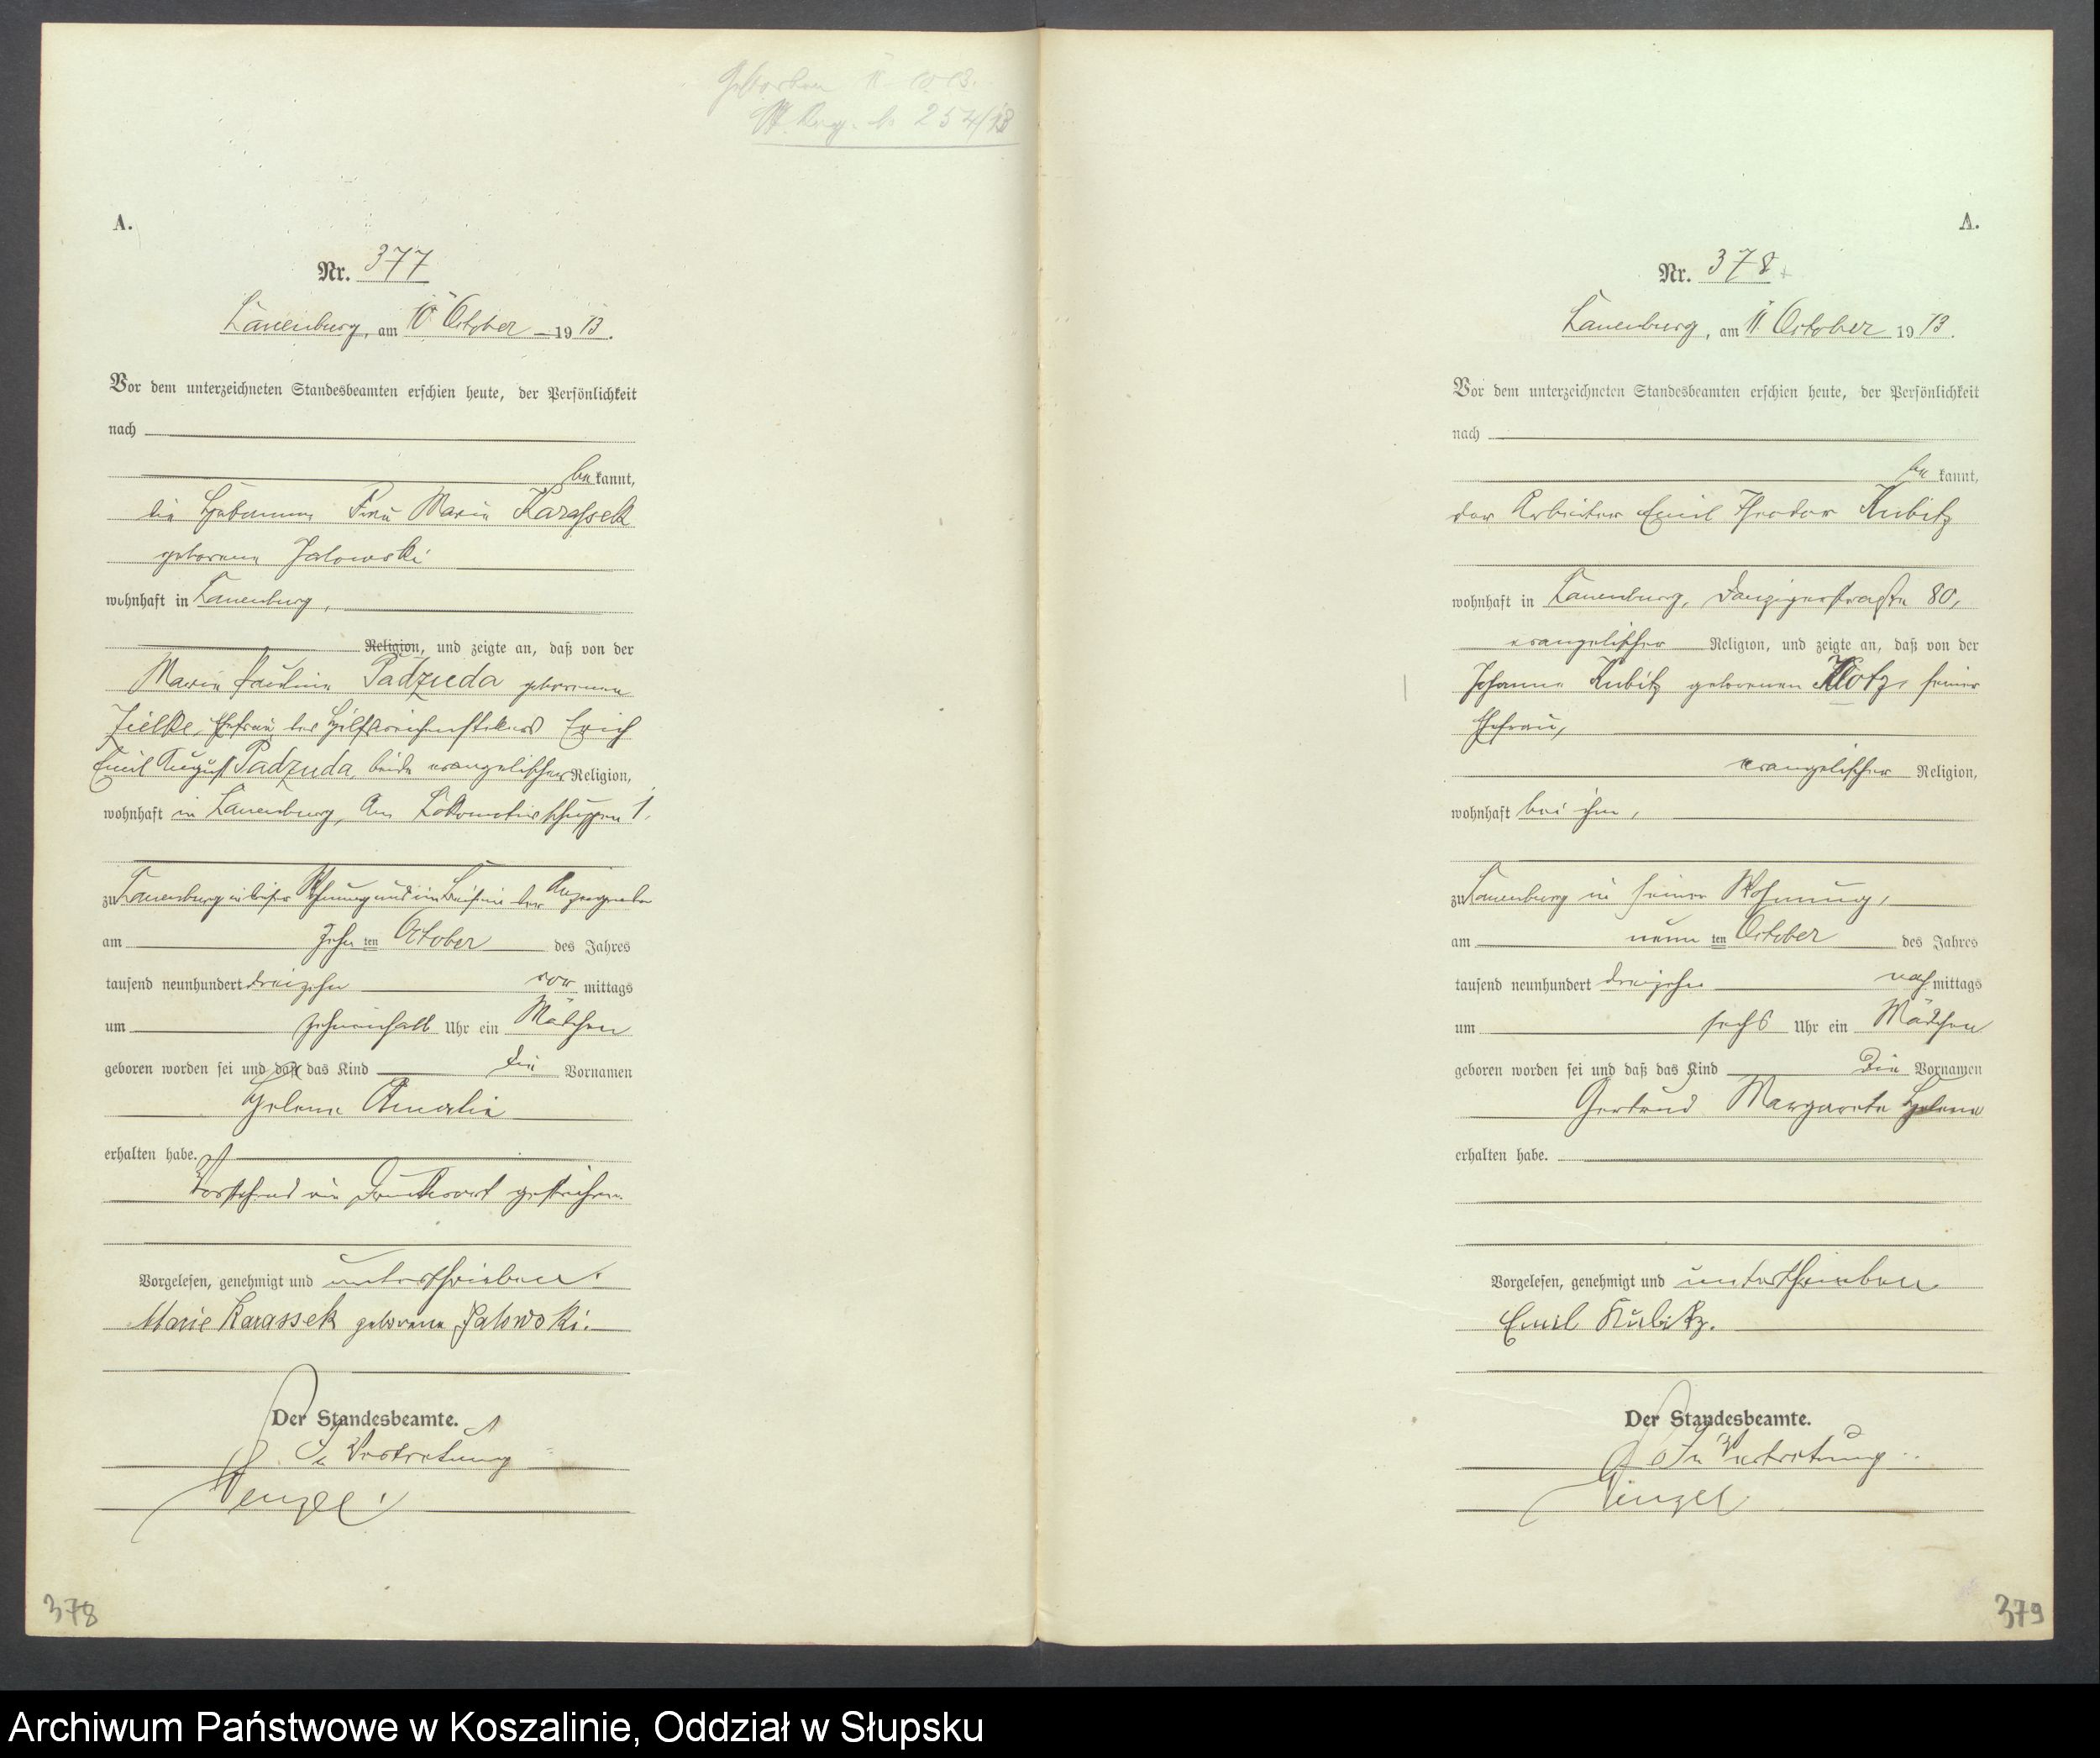 Gestorben 11. 10. 13.
St. Reg. No 254/13
A.
Nr. 377
Lauenburg, am 10 October 1913.
Vor dem unterzeichneten Standesbeamten erschien heute, der Persönlichkeit
nach
be kannt,
die Hebamme Frau Marie Karassek
geborene Jalowski
wohnhaft in Lauenburg,
Religion, und zeigte an, daß von der
Marie Pauline Padzuda geborenen
Zielke, Ehefrau des Hilfsweichenstellers Erich
Emil August Padzuda, beide evangelischer Religion,
wohnhaft in Lauenburg, Am Lokomotivschuppen 1.
zu Lauenburg in dieser Wohnung und im Beisein der Anzeigenden
am zehn ten October des Jahres
tausend neunhundert dreizehn vor mittags
um zehneinhalb Uhr ein Mädchen
geboren worden sei und daß das Kind die Vornamen
Helene Amalie
erhalten habe.
Vorstehend ein Druckwort gestrichen.
Vorgelesen, genehmigt und unterschrieben.
Marie Karassek geborene Jalowski.
Der Standesbeamte.
In Vertretung
Wenzel
378
A.
Nr. 378
Lauenburg, am 11. October 1913.
Vor dem unterzeichneten Standesbeamten erschien heute, der Persönlichkeit
nach
be kannt,
der Arbeiter Emil Theodor Kubitz
wohnhaft in Lauenburg, Danzigerstraße 80,
evangelischer Religion, und zeigte an, daß von der
Johanna Kubitz geborenen Klotz, seiner
Ehefrau,
evangelischer Religion,
wohnhaft bei ihm,
zu Lauenburg in seiner Wohnung,
am neun ten October des Jahres
tausend neunhundert dreizehn nach mittags
um sechs Uhr ein Mädchen
geboren worden sei und daß das Kind die Vornamen
Gertrud Margarete Helene
erhalten habe.
Vorgelesen, genehmigt und unterschrieben
Emil Kubitz.
Der Standesbeamte.
In Vertretung
Wenzel
379
Archiwum Państwowe w Koszalinie, Oddział w Słupsku